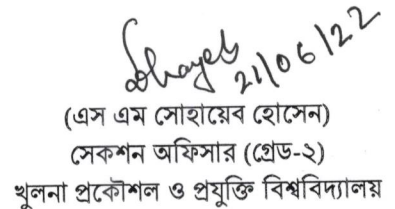 Shayeb
21/06/22
(এস এম সোহায়েব হোসেন)
সেকশন অফিসার (গ্রেড-২)
খুলনা প্রকৌশল ও প্রযুক্তি বিশ্ববিদ্যালয়